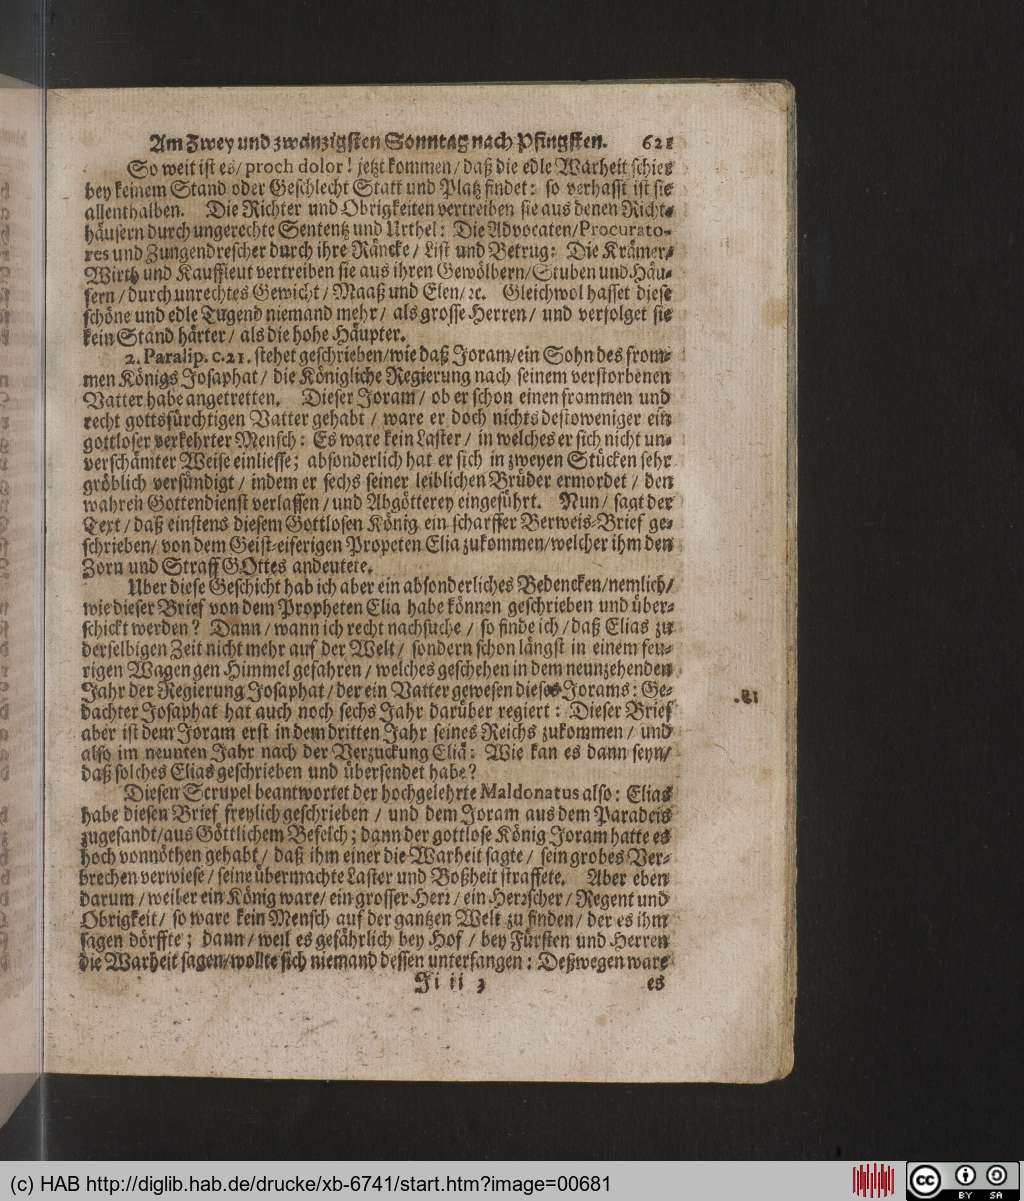 Am Zwey und zwanzigsten Sonntag nach Pfingsten. 621
So weit ist es/ proch dolor! jetzt kommen/ daß die edle Warheit schier
bey keinem Stand oder Geschlecht Statt und Platz findet: so verhasst ist sie
allenthalben. Die Richter und Obrigkeiten vertreiben sie aus denen Richt-
häusern durch ungerechte Sententz und Urthel: Die Advocaten/ Procurato-
res und Zungendrescher durch ihre Räncke/ List und Betrug: Die Krämer/
Wirth und Kauffleut vertreiben sie aus ihren Gewölbern/ Stuben und Häu-
sern/ durch unrechtes Gewicht/ Maaß und Elen/ ꝛc. Gleichwol hasset diese
schöne und edle Tugend niemand mehr/ als grosse Herren/ und verfolget sie
kein Stand härter/ als die hohe Häupter.
2. Paralip. c. 21. stehet geschrieben/ wie daß Joram/ ein Sohn des from-
men Königs Josaphat/ die Königliche Regierung nach seinem verstorbenen
Vatter habe angetretten. Dieser Joram/ ob er schon einen frammen und
recht gottsfürchtigen Vatter gehabt/ ware er doch nichts destoweniger ein
gottloser verkehrter Mensch: Es ware kein Laster/ in welches er sich nicht un-
verschämter Weise einliesse; absonderlich hat er sich in zweyen Stücken sehr
gröblich versündigt/ indem er sechs seiner leiblichen Brüder ermordet/ den
wahren Gottendienst verlassen/ und Abgötterey eingeführt. Nun/ sagt der
Text/ daß einstens diesem Gottlosen König ein scharffer Verweis-Brief ge-
schrieben/ von dem Geist-eiferigen Propeten Elia zukommen/ welcher ihm den
Zorn und Straff GOttes andeutete.
Uber diese Geschicht hab ich aber ein absonderliches Bedencken/ nemlich/
wie dieser Brief von dem Propheten Elia habe können geschrieben und über-
schickt werden? Dann/ wann ich recht nachsuche/ so finde ich/ daß Elias zu
derselbigen Zeit nicht mehr auf der Welt/ sondern schon längst in einem feu-
rigen Wagen gen Himmel gefahren/ welches geschehen in dem neunzehenden
Jahr der Regierung Josaphat/ der ein Vatter gewesen dieses Jorams: Ge-
dachter Josaphat hat auch noch sechs Jahr darüber regiert: Dieser Brief
aber ist dem Joram erst in dem dritten Jahr seines Reichs zukommen/ und
also im neunten Jahr nach der Verzuckung Eliä: Wie kan es dann seyn/
daß solches Elias geschrieben und übersendet habe?
Diesen Scrupel beantwortet der hochgelehrte Maldonatus also: Elias
habe diesen Brief freylich geschrieben/ und dem Joram aus dem Paradeis
zugesandt/ aus Göttlichem Befelch; dann der gottlose König Joram hatte es
hoch vonnöthen gehabt/ daß ihm einer die Warheit sagte/ sein grobes Ver-
brechen verwiese/ seine übermachte Laster und Boßheit straffete. Aber eben
darum/ weil er ein König ware/ ein grosser Herꝛ/ ein Herꝛscher/ Regent und
Obrigkeit/ so ware kein Mensch auf der gantzen Welt zu finden/ der es ihm
sagen dörffte; dann/ weil es gefährlich bey Hof/ bey Fürsten und Herren
die Warheit sagen/ wollte sich niemand dessen unterfangen: Deßwegen ware
Ji ii 3 es
(c) HAB http://diglib.hab.de/drucke/xb-6741/start.htm?image=00681
cc BY SA